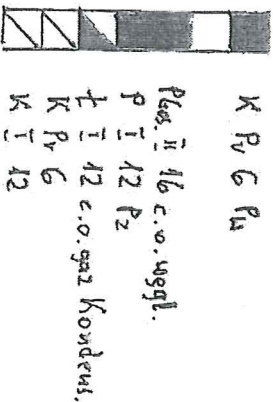 K Pv 6 P4
Plus. II 16 c.o. węgl.
P I 12 P2
Ł I 12 c.o. gaz Kondens.
K Pv 6
K I 12